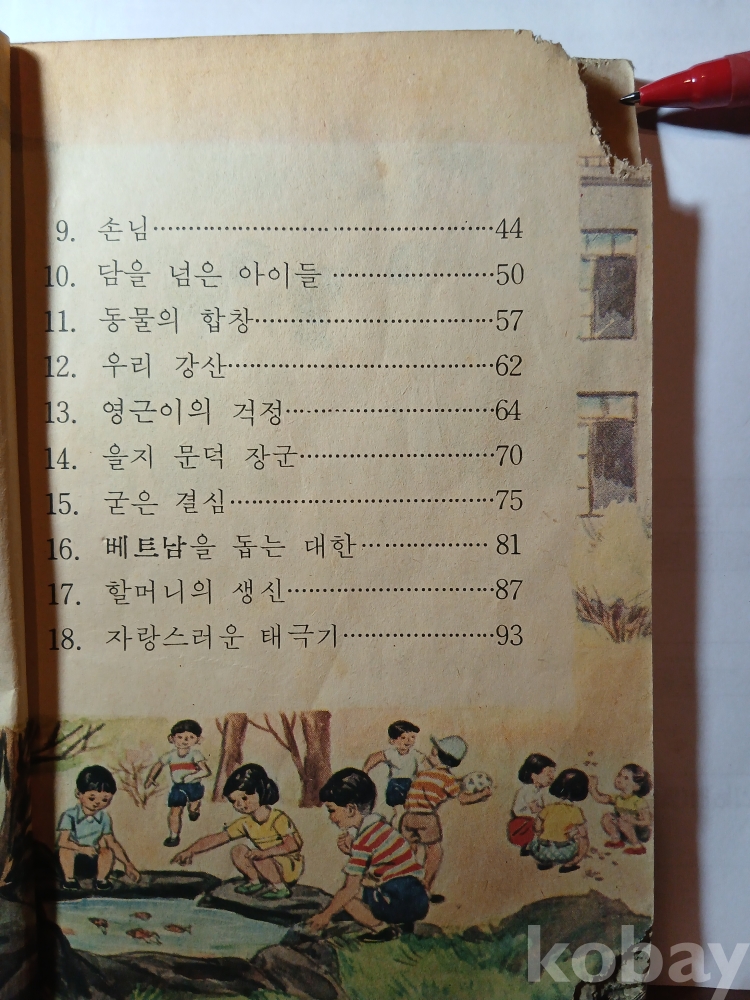 9. 손님……………………………………44
10. 담을 넘은 아이들 ………………50
11. 동물의 합창…………………………57
12. 우리 강산……………………………62
13. 영근이의 걱정………………………64
14. 을지 문덕 장군……………………70
15. 굳은 결심……………………………75
16. 베트남을 돕는 대한……………81
17. 할머니의 생신………………………87
18. 자랑스러운 태극기………………93
kobay